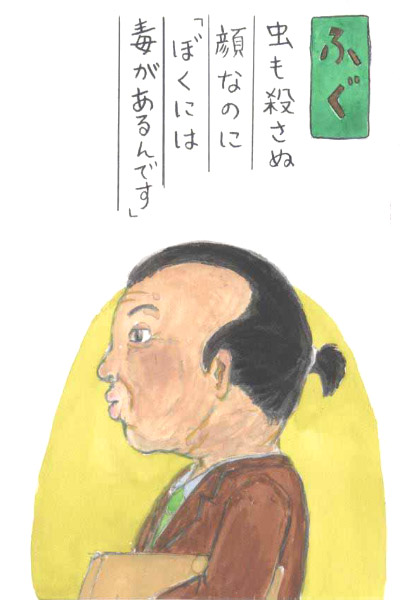 ふぐ
虫も殺さぬ
顔なのに
「ぼくには
毒があるんです」